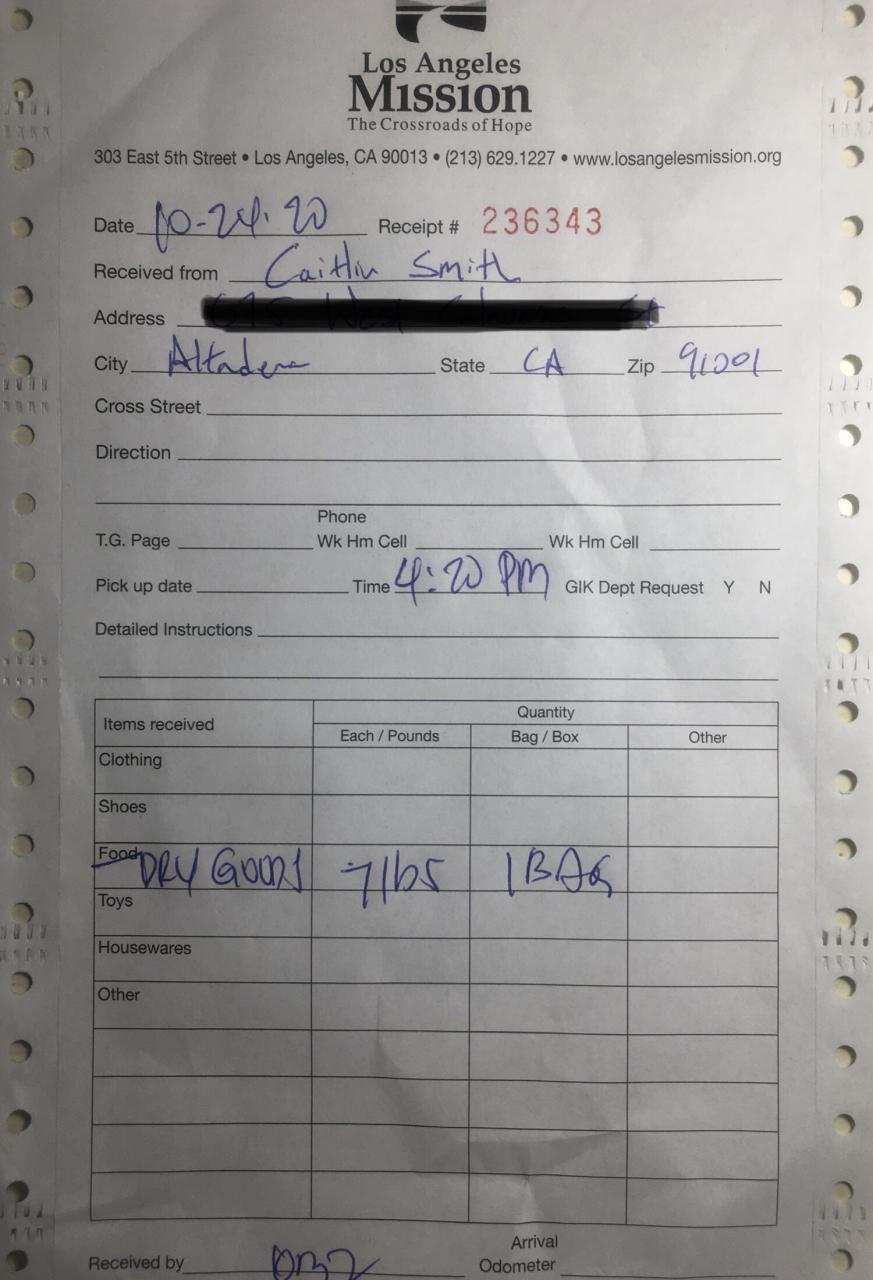 Los Angeles
Mission
The Crossroads of Hope
303 East 5th Street • Los Angeles, CA 90013 • (213) 629.1227 • www.losangelesmission.org
Date 10-24-20 Receipt # 236343
Received from Caitlin Smith
Address
City Altadena State CA Zip 91001
Cross Street
Direction
Phone
T.G. Page Wk Hm Cell Wk Hm Cell
Pick up date Time 4:20 PM GIK Dept Request Y N
Detailed Instructions
Items received Quantity
Each / Pounds Bag / Box Other
Clothing
Shoes
Food DRY GOODS 7 lbs 1 BAG
Toys
Housewares
Other
Arrival
Received by Odometer